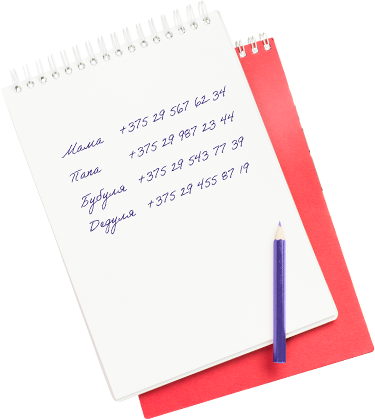 Мама +375 29 567 62 34
Папа +375 29 987 23 44
Бубуля +375 29 543 77 39
Дедуля +375 29 455 87 19